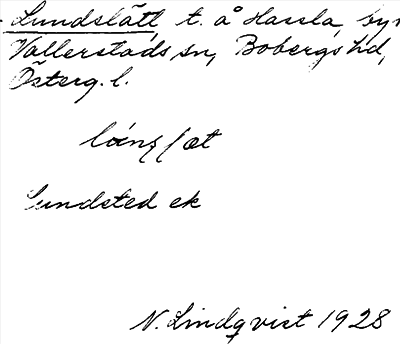 Lundslätt, t. å Hassla, by,
Vallerstads sn, Bobergs hd,
Österg. l.
Lundsted ek
N. Lindqvist 1928